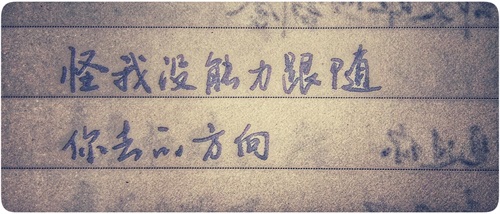 怪我没能力跟随
你去的方向